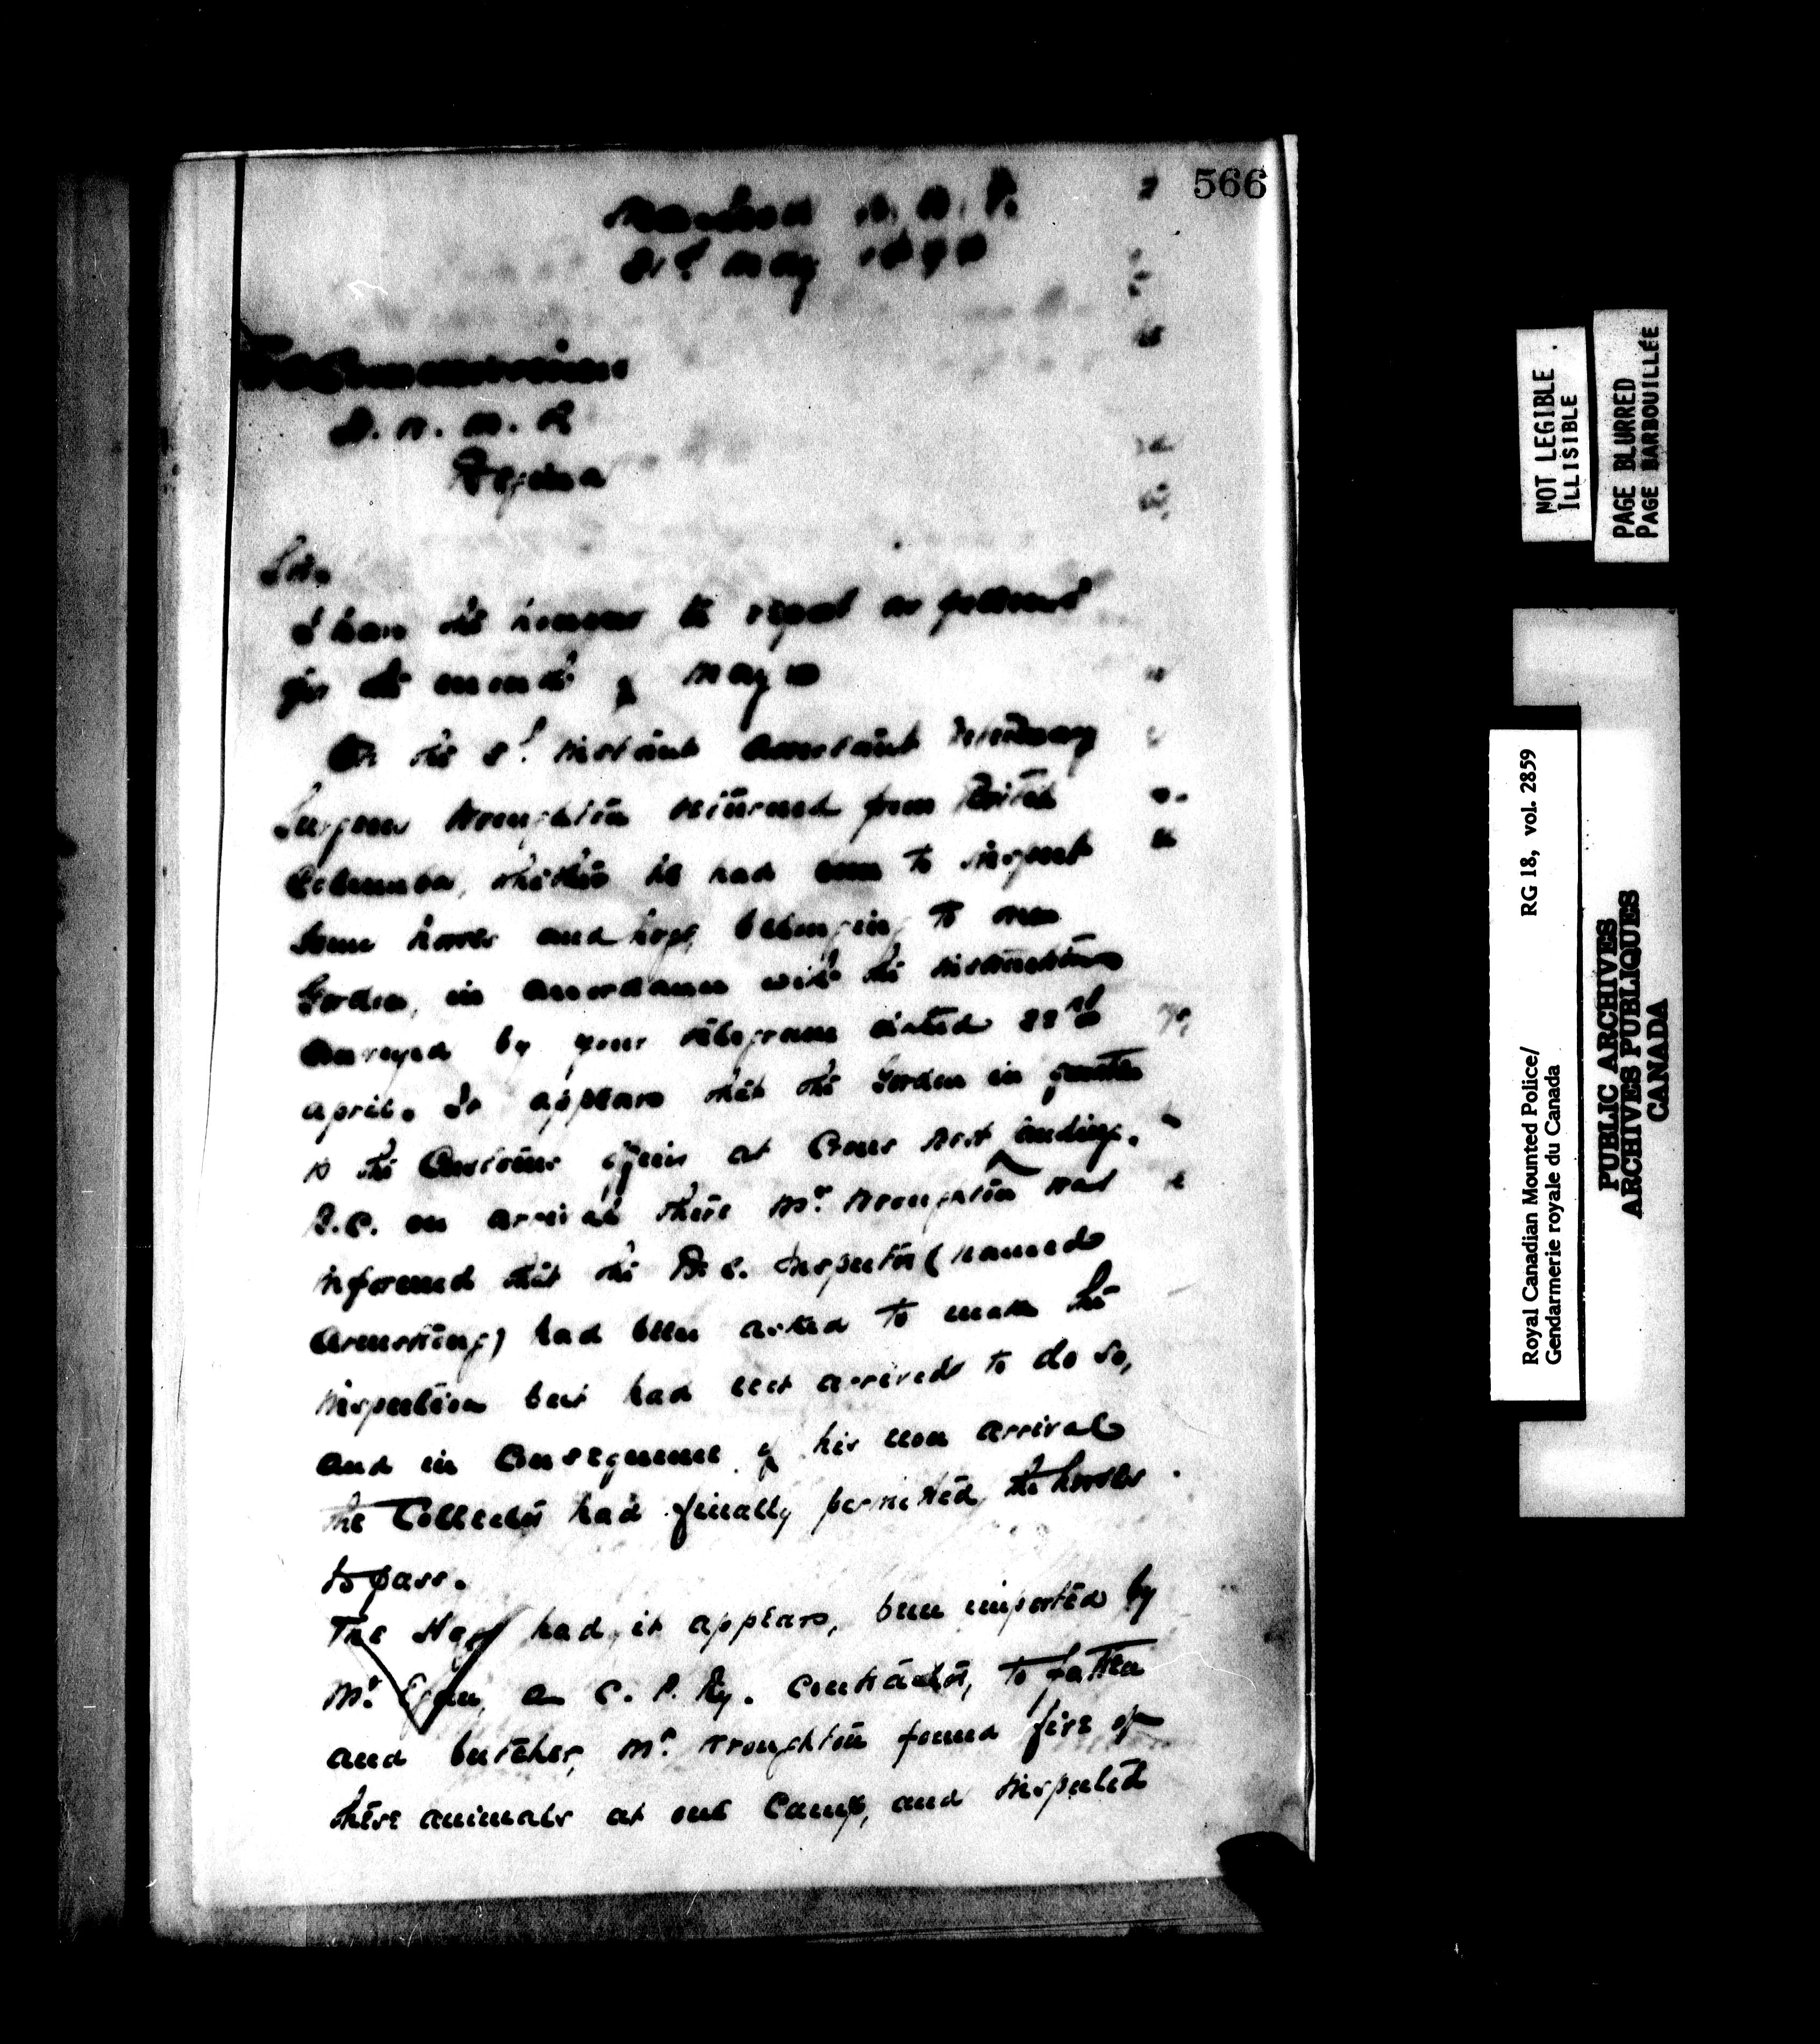 566
Macleod N. W. T.
31st May 1898
The Commissioner
N. W. M. P.
Regina
Sir,
I have the honour to report as follows
for the month of May
On the 8th instant Assistant Veterinary
Surgeon Wroughton returned from British
Columbia, whither he had been to inspect
some horses and hogs, belonging to one
Gordon, in accordance with the instructions
conveyed by your telegram dated 22nd
April. It appears that the Gordon in question
is the Customs officer at Crows Nest Landing.
B.C. on arrival there Mr. Wroughton was
informed that the B.C. Inspector (named
Armstrong) had been asked to make the
inspection but had not arrived to do so,
and in consequence of his non arrival
the Collector had finally permitted the horses
to pass.
The Hogs had, it appears, been imported by
Mr. Egan, a C. P. Ry. contractor, to fatten
and butcher, Mr. Wroughton found five of
these animals at one Camp, and inspected
NOT LEGIBLE
ILLISIBLE
PAGE BLURRED
PAGE BARBOUILLÉE
Royal Canadian Mounted Police/ RG 18, vol. 2859
Gendarmerie royale du Canada
PUBLIC ARCHIVES
ARCHIVES PUBLIQUES
CANADA